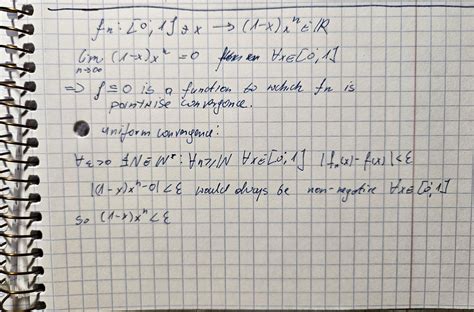 fn: [0; 1] ∋ x → (1-x)xⁿ ∈ ℝ
lim (1-x)xⁿ = 0 ∀x∈[0; 1]
n→∞
⇒ f ≡ 0 is a function to which fn is
pointwise convergence.
uniform convergence:
∀ε>0 ∃N∈ℕ*: ∀n≥N ∀x∈[0; 1] |fn(x)-f(x)|<ε
|(1-x)xⁿ-0|<ε would always be non-negative ∀x∈[0; 1]
so (1-x)xⁿ<ε